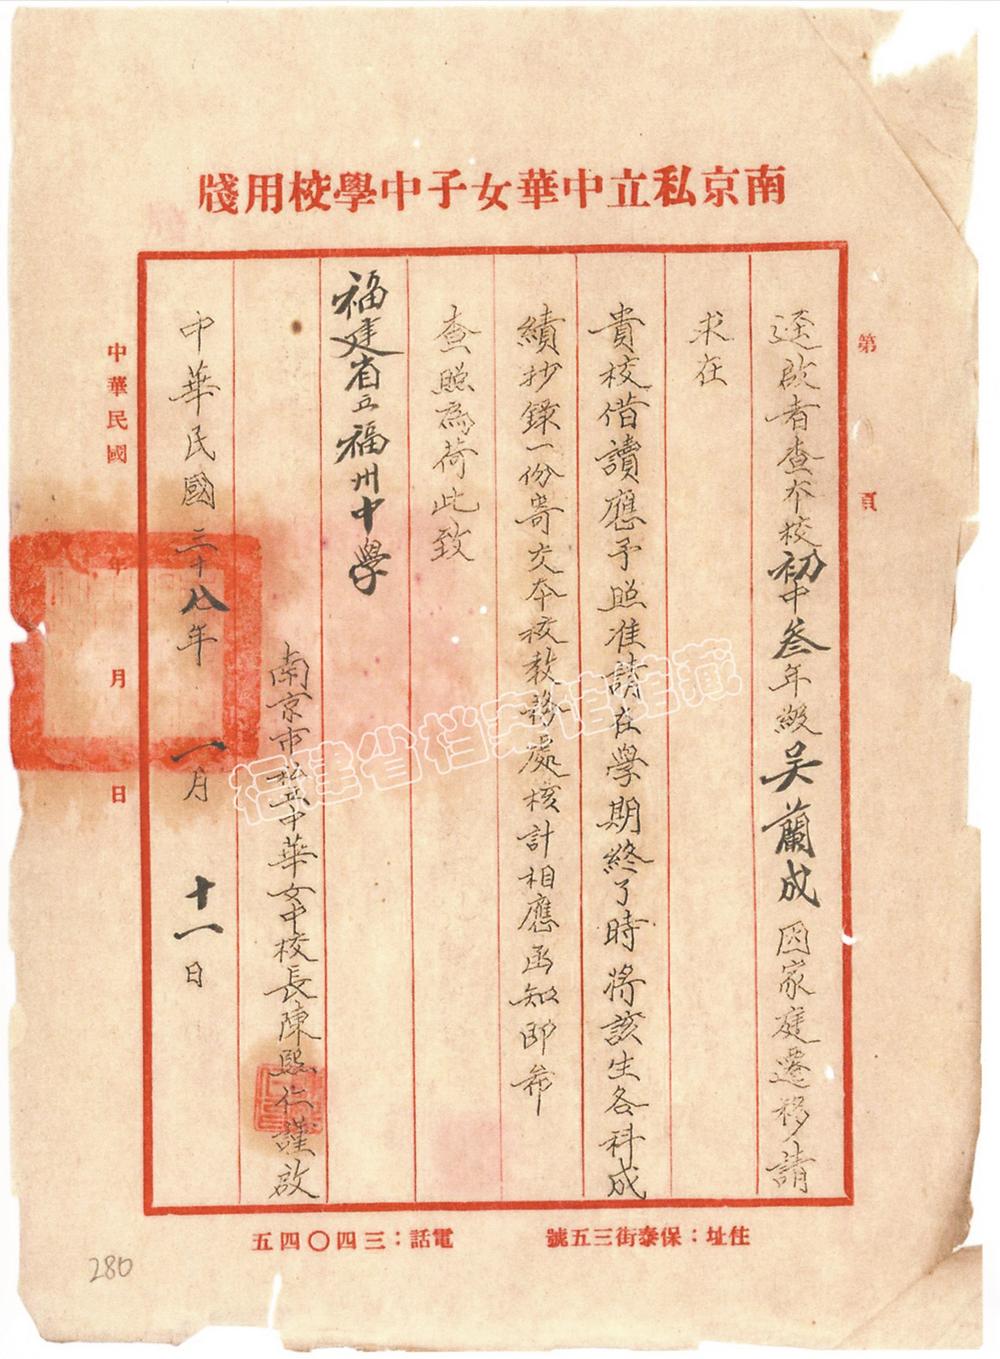 南京私立中華女子中學校用牋
第　頁
逕啟者查本校初中叁年級吳蘭成因家庭遷移請
求在
貴校借讀應予照准請在學期終了時將該生各科成
績抄錄一份寄交本校教務處核計相應函知即希
查照為荷此致
福建省立福州中學
南京市私立中華女中校長陳熙仁謹啟
中華民國三十八年一月十一日
中華民國　年　月　日
住址：保泰街三五號
電話：三四〇四五
福建省档案馆馆藏
280